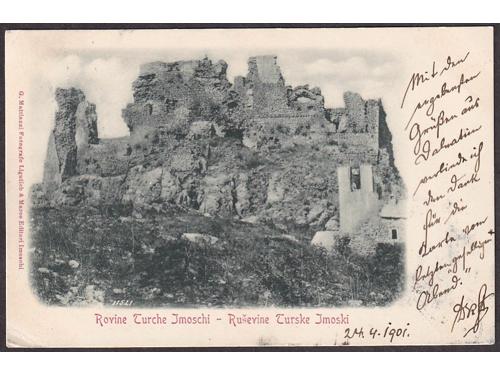 Mit den
ergebensten
Grüßen aus
Dalmatien
verbinde ich
den Dank
für die
Karte vom
letzten geselligen
Abend."
G. Mattiazzi Fotografo Ligutich & Maroe Editori Imoschi
11521
Rovine Turche Imoschi - Ruševine Turske Imoski
24.4.1901.